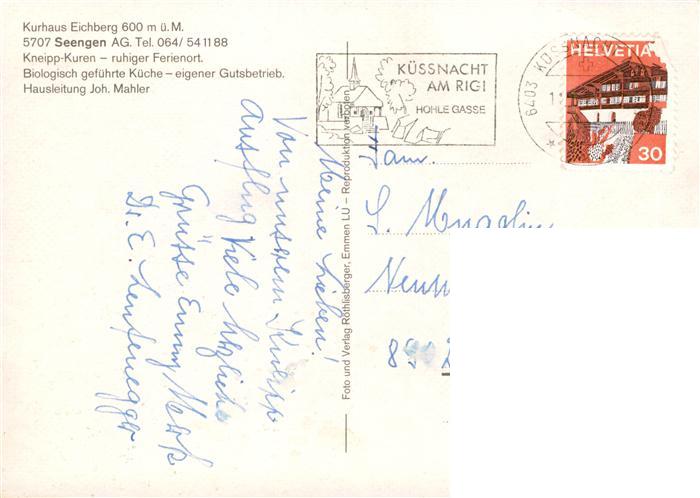 Kurhaus Eichberg 600 m ü. M.
5707 Seengen AG. Tel. 064/ 54 11 88
Kneipp-Kuren – ruhiger Ferienort.
Biologisch geführte Küche – eigener Gutsbetrieb.
Hausleitung Joh. Mahler
KÜSSNACHT
AM RIGI
HOHLE GASSE
6403 KÜSSNACHT
HELVETIA
30
Foto und Verlag Röthlisberger, Emmen LU – Reproduktion verboten
Meine Lieben!
Von unserem
Ausflug viele herzliche
Grüsse Emmy
Dr. E. Leutenegger
Fam.